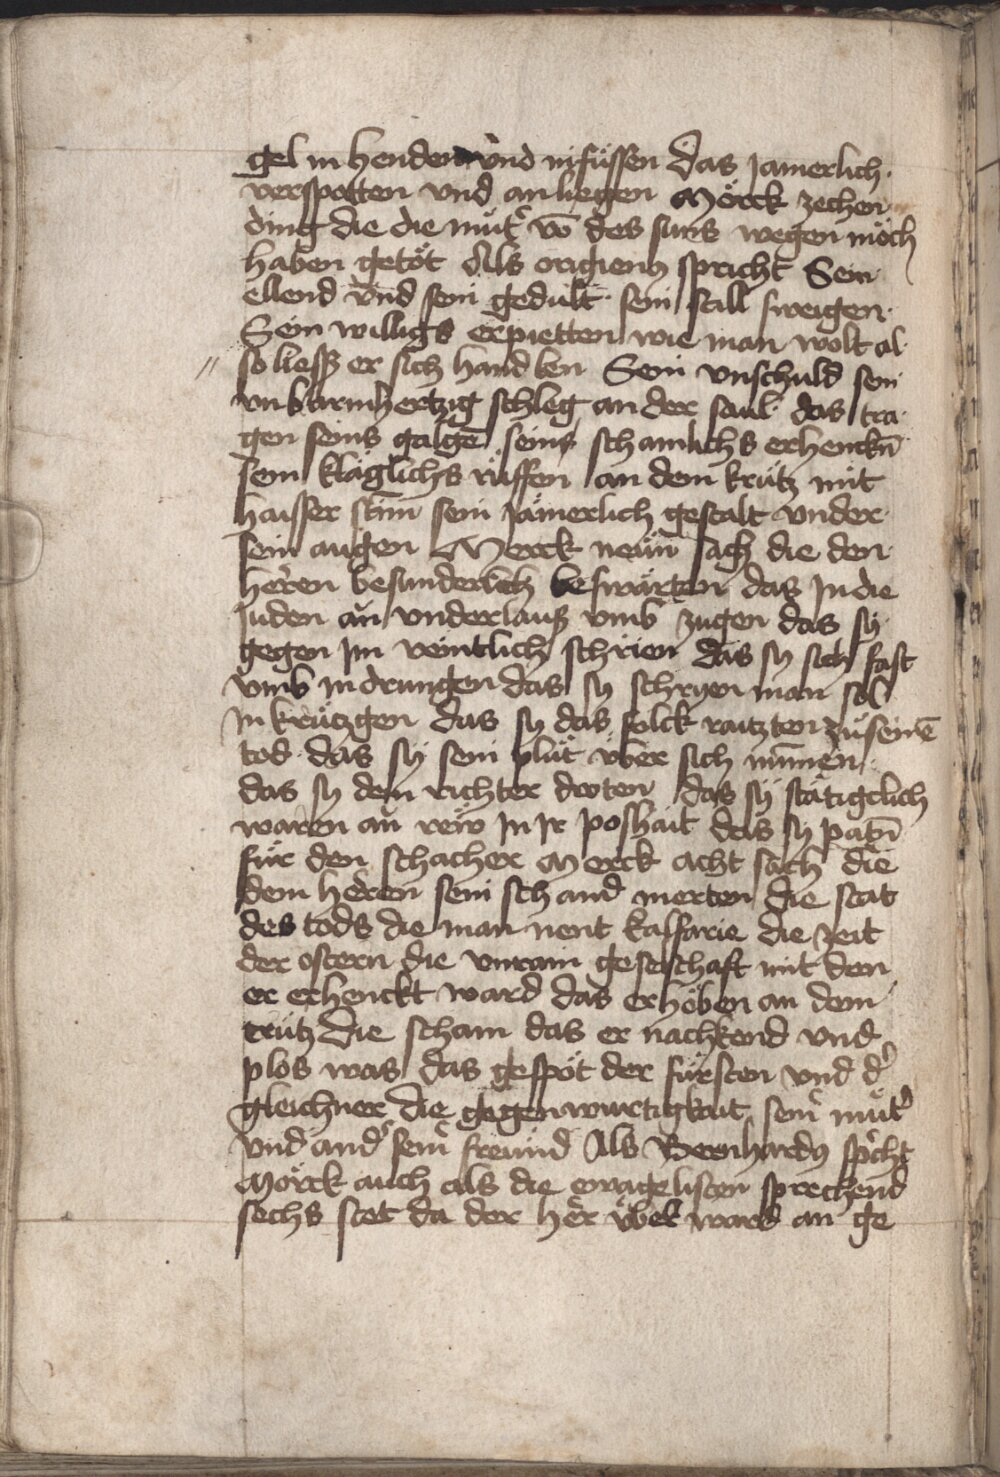 gel in henden vnd in füssen das jamerlich
verspotten vnd an liegen Mörck zechen
ding die die mutˀ vō des suns wegen möch
haben getöt Als origienꝰ spricht Sein
ellend vnd sein gedült sein still sweigen
Sein willigs erpietten wie man wolt al
so liesz er sich handlen Sein vnschuld sein
vnbarmhertzig schleg an der saul das tra
gen seins galgē seins schamlichs erhenckn̄
sein kläglichs rüffen an dem krütz mit
haisser stim sein jämerlich gestalt vnder
sein augen Merck neün sach die den
herren besunderlich beswärten das jn die
juden an vnderlausz vmb zugen das sy
gegen jm veintlich schrien das sy sich fast
vmb jn drungen das sy schryen man sol
jn krützgen das sy das folck raitzten zu seinē
tod das sy sein plut vber sich numen
das sy dem richter droten das sy stätigclich
waren an rew jn jr poshait das sy patn̄
für den schacher Merck acht sach die
dem herren sein schand merten die stat
des tods die man nent kalfarie die zeit
der ostern die vnrain geselschaft mit den
er erhenckt ward das erhöben an dem
crütz die scham das er nachkend vnd
plos was das gespöt der fürsten vnd dˀ
gleichner die gegenwürtigkait seinˀ mutˀ
vnd andˀ seinˀ freünd Als Bernhardꝰ spˀcht
Mörck auch als die ewagelisten sprechend
sechs stet da der her vbel ward an ge